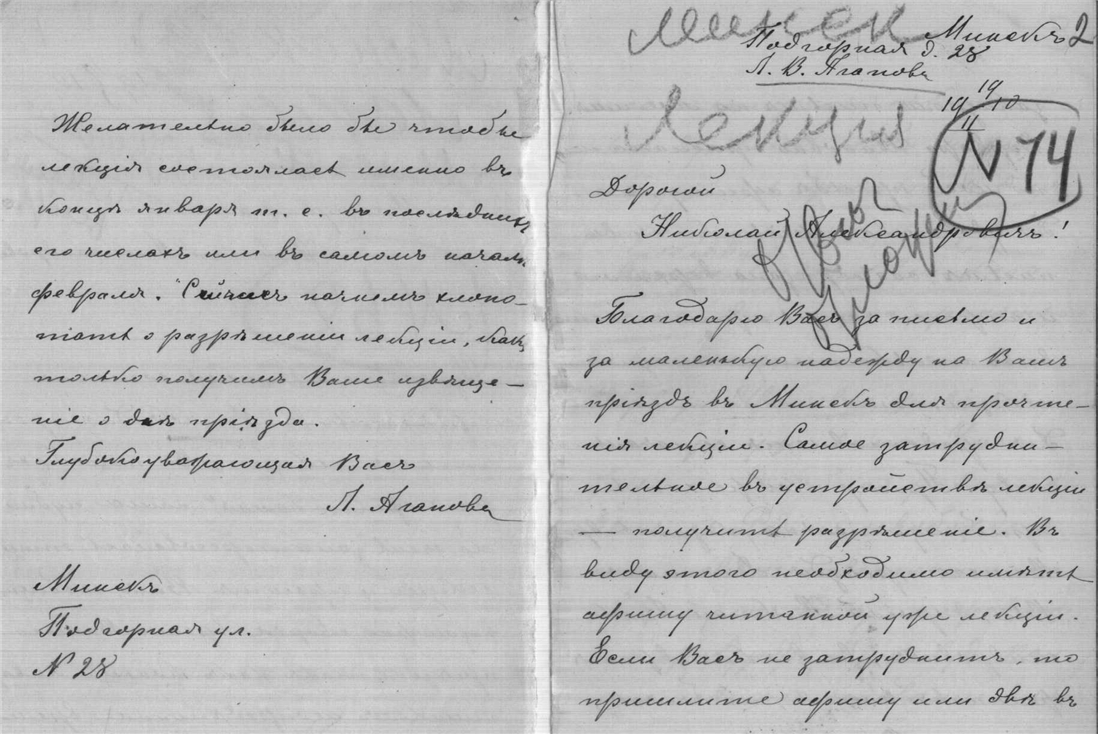 Желательно было бы чтобы
лекція состоялась именно въ
концѣ января т. е. въ послѣднихъ
его числахъ или въ самомъ началѣ
февраля. Сейчасъ начнемъ хлопо-
тать о разрѣшеніи лекціи, какъ
только получимъ Ваше извѣще-
ніе о днѣ пріѣзда.
Глубокоуважающая Васъ
Л. Агапова
Минскъ
Подгорная ул.
N 28
Минск
Минскъ 2
Подгорная д. 28
Л. В. Агапова
19 19/11 10
Лекция
N 74
Дорогой
Николай Александровичъ!
Благодарю Васъ за письмо и
за маленькую надежду на Вашъ
пріѣздъ въ Минскъ для прочте-
нія лекціи. Самое затрудни-
тельное въ устройствѣ лекціи
— получить разрѣшеніе. Въ
виду этого необходимо имѣть
афишу читанной уже лекціи.
Если Васъ не затруднитъ, то
пришлите афишу или двѣ въ